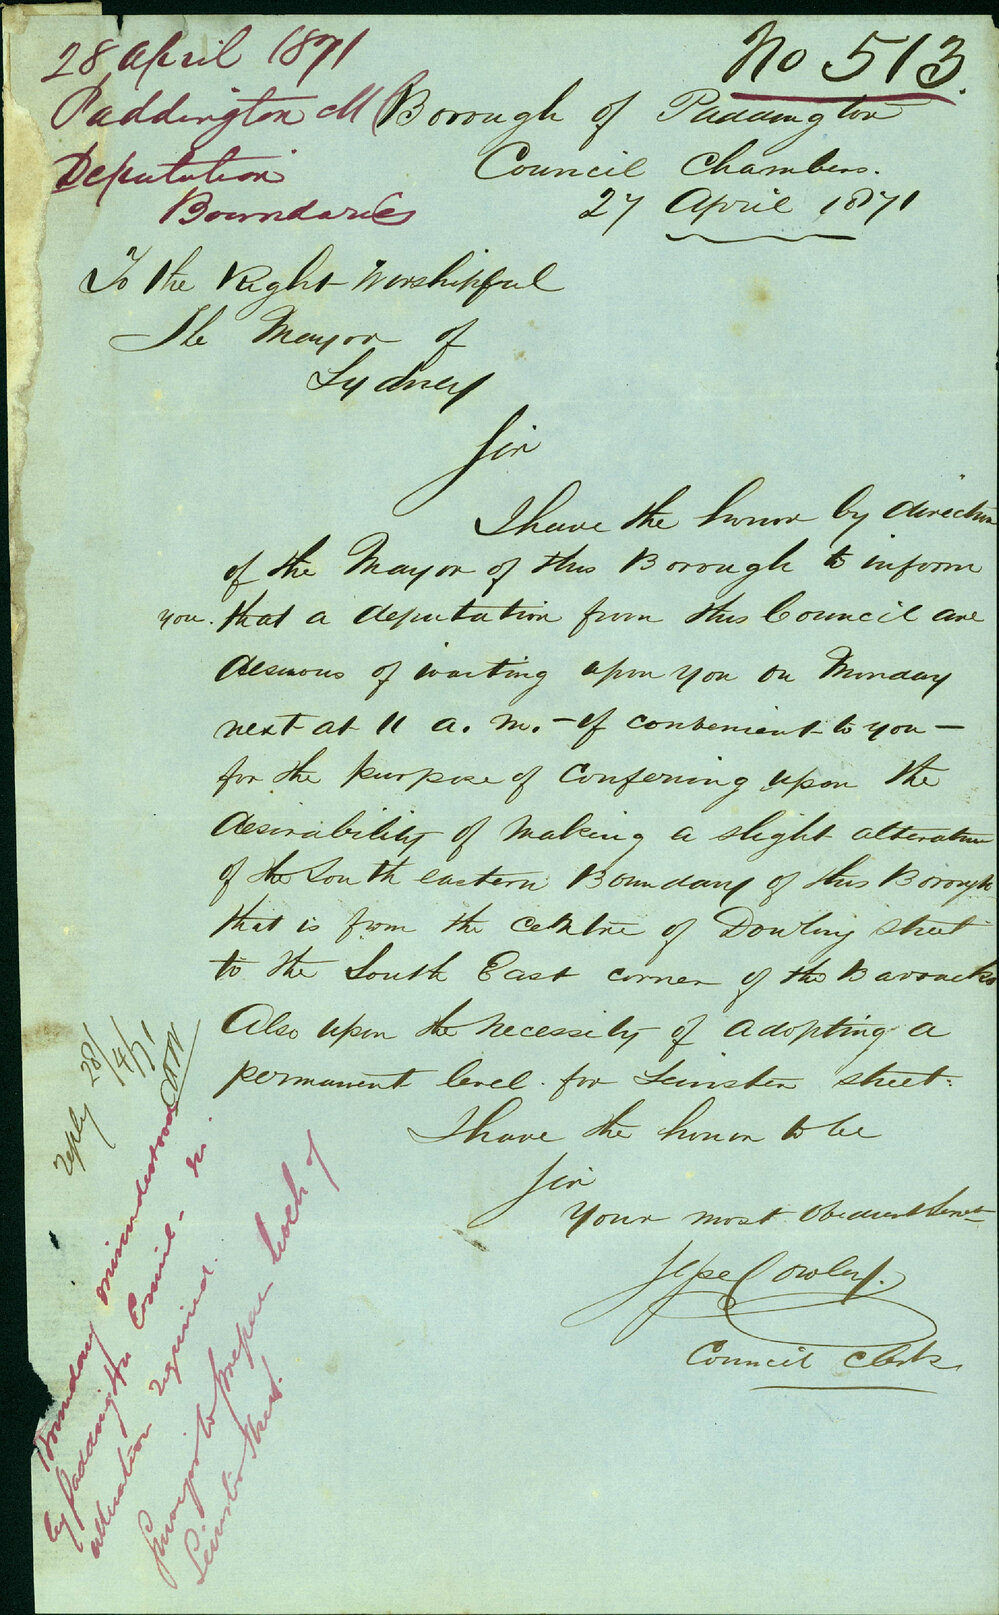 28 April 1871
No 513.
Paddington M
Deputation
Boundaries
Borough of Paddington
Council Chambers.
27 April 1871
To the Right Worshipful
The Mayor of
Sydney
Sir
I have the honor by direction
of the Mayor of this Borough to inform
you. that a deputation from this Council are
desirous of waiting upon you on Monday
next at 11 a.m. - if convenient to you -
for the purpose of Conferring upon the
desirability of making a slight alteration
of the South eastern Boundary of this Borough
that is from the centre of Dowling street
to the South East corner of the Barracks
Also upon the necessity of adopting a
permanent level for Leinster street.
I have the honor to be
Sir
Your most Obedient Servt
Cowley.
Council Clerk
reply 28/4/71
Boundary misunderstood
by Paddington Council - no
alteration required.
Surveyor to prepare
of
Leinster Street.